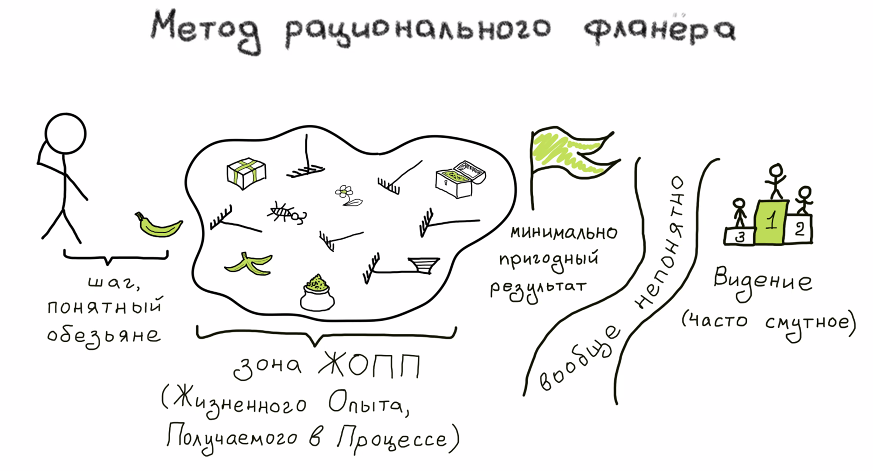 Метод рационального фланёра
шаг,
понятный
обезьяне
зона ЖОПП
(Жизненного Опыта,
Получаемого в Процессе)
минимально
пригодный
результат
вообще непонятно
3 1 2
Видение
(часто смутное)